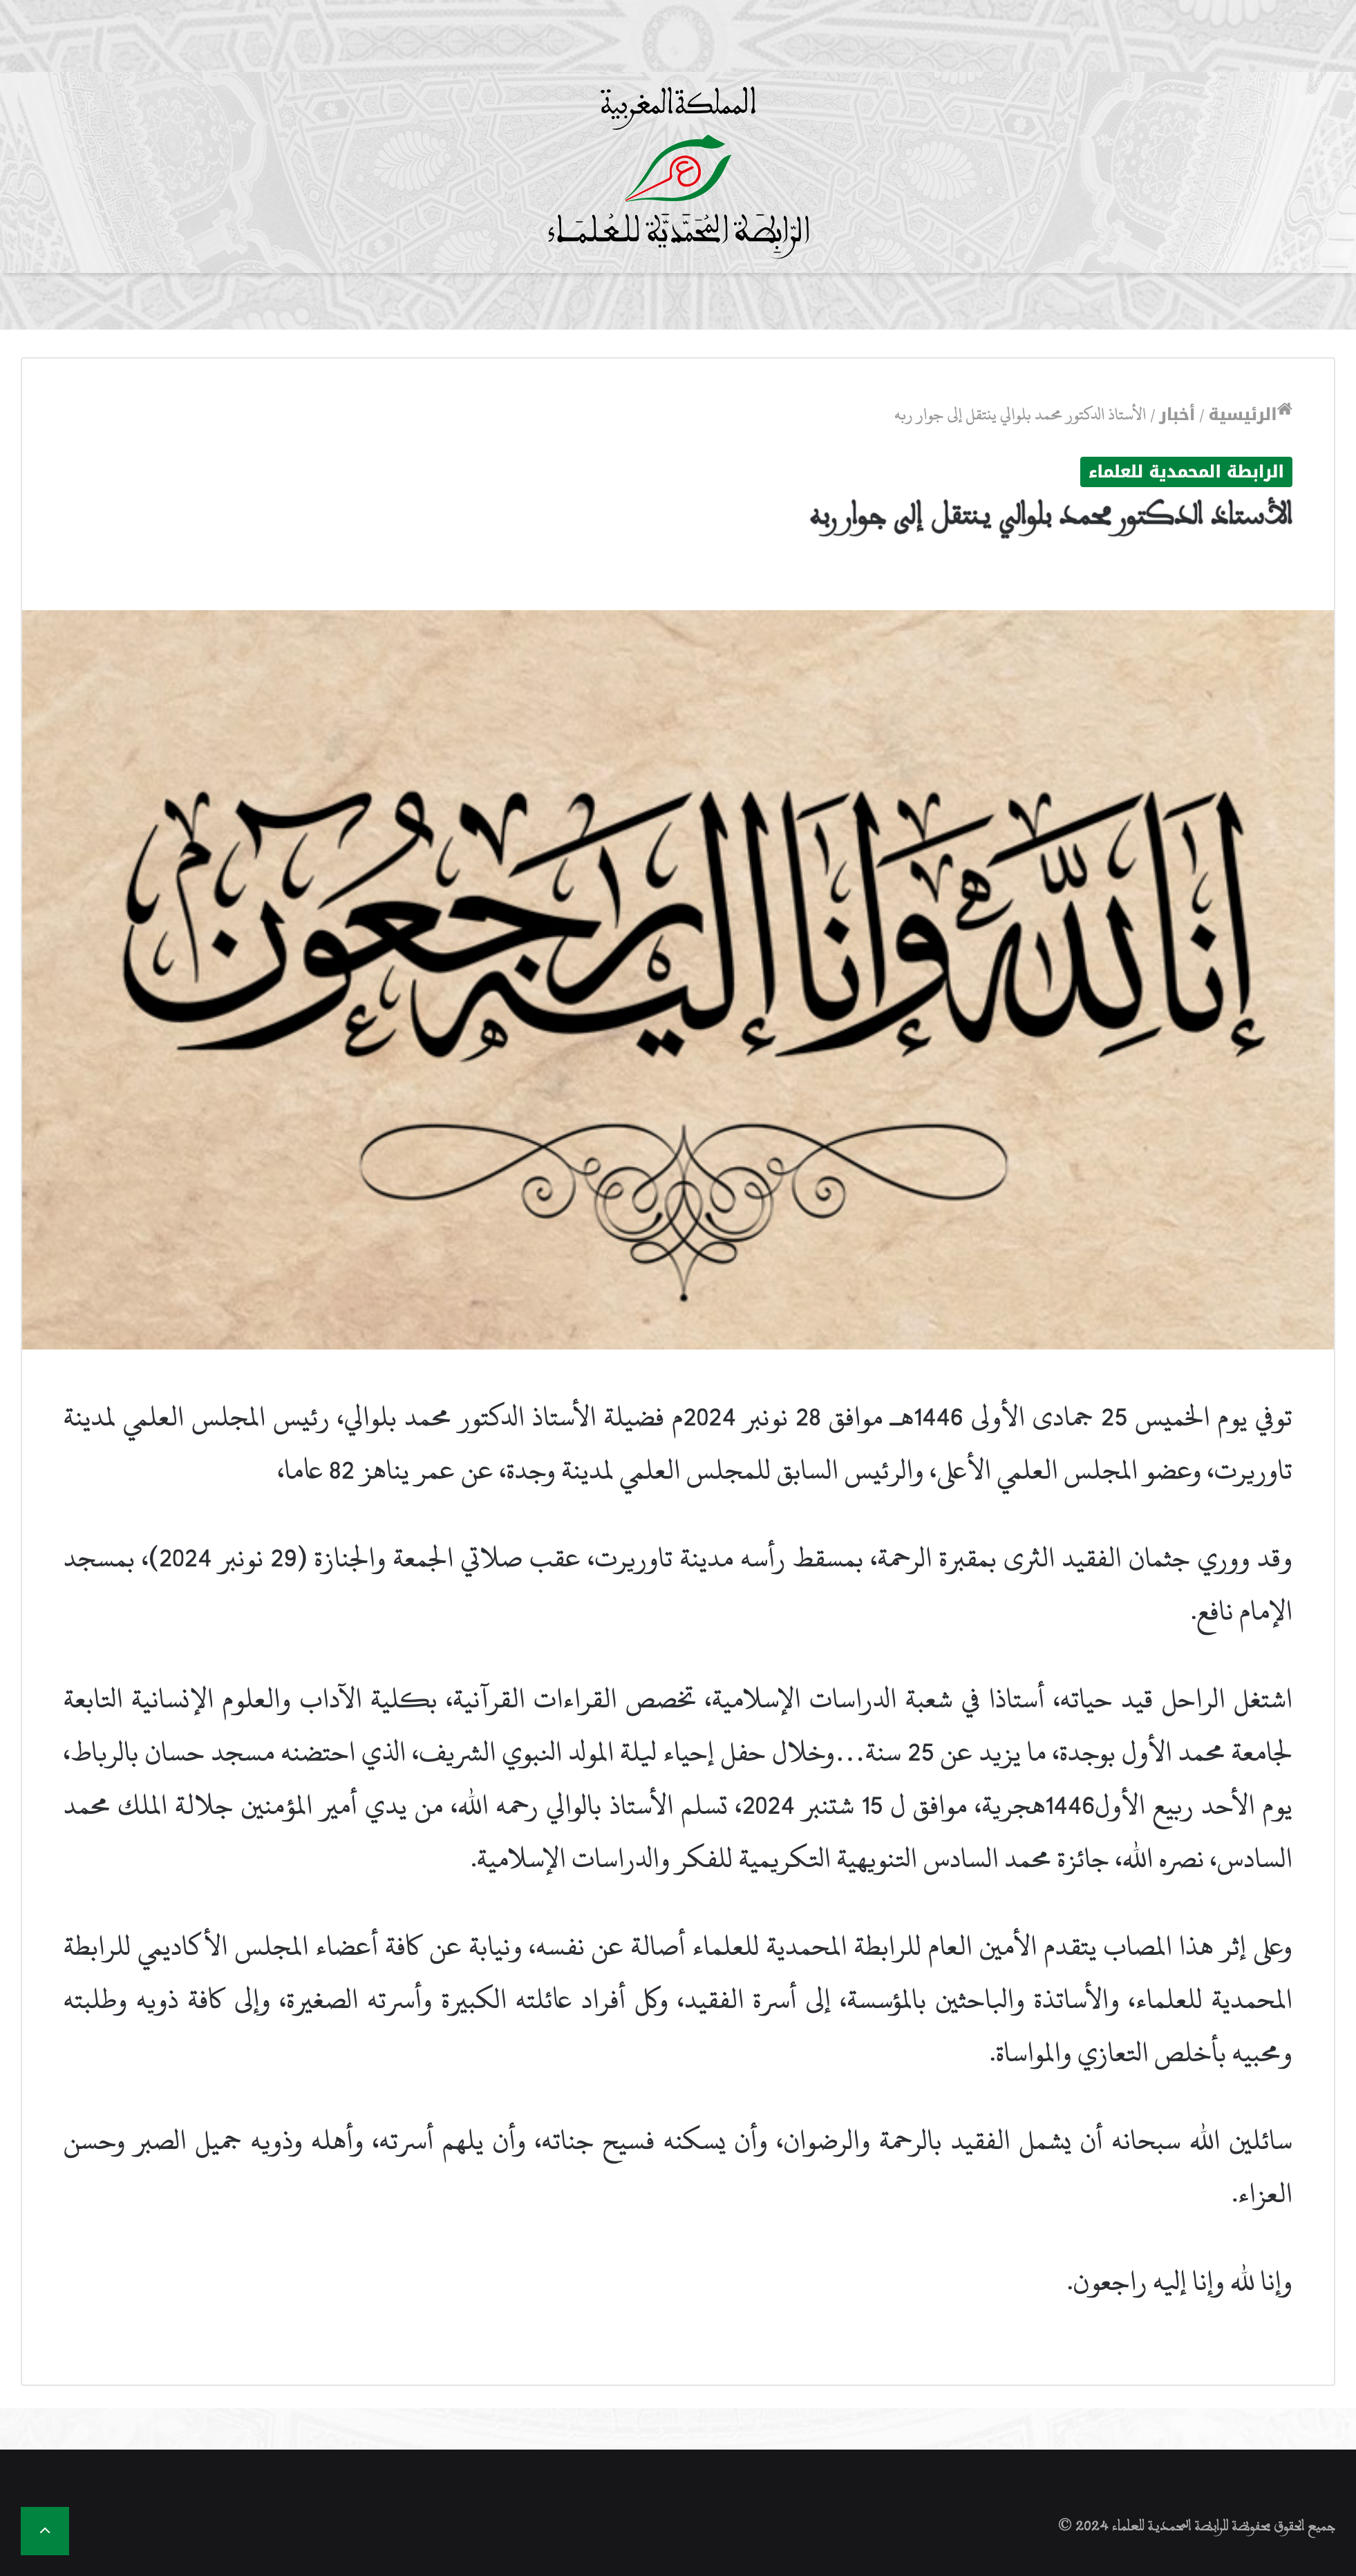 المملكة المغربية
الرابطة المحمدية للعلماء
الرئيسية / أخبار / الأستاذ الدكتور محمد بلوالي ينتقل إلى جوار ربه
الرابطة المحمدية للعلماء
الأستاذ الدكتور محمد بلوالي ينتقل إلى جوار ربه
إنا لله وإنا إليه راجعون
توفي يوم الخميس 25 جمادى الأولى 1446هـ موافق 28 نونبر 2024م فضيلة الأستاذ الدكتور محمد بلوالي، رئيس المجلس العلمي لمدينة
تاوريرت، وعضو المجلس العلمي الأعلى، والرئيس السابق للمجلس العلمي لمدينة وجدة، عن عمر يناهز 82 عاما،
وقد ووري جثمان الفقيد الثرى بمقبرة الرحمة، بمسقط رأسه مدينة تاوريرت، عقب صلاتي الجمعة والجنازة (29 نونبر 2024)، بمسجد
الإمام نافع.
اشتغل الراحل قيد حياته، أستاذا في شعبة الدراسات الإسلامية، تخصص القراءات القرآنية، بكلية الآداب والعلوم الإنسانية التابعة
لجامعة محمد الأول بوجدة، ما يزيد عن 25 سنة...وخلال حفل إحياء ليلة المولد النبوي الشريف، الذي احتضنه مسجد حسان بالرباط،
يوم الأحد ربيع الأول1446هجرية، موافق ل 15 شتنبر 2024، تسلم الأستاذ بالوالي رحمه الله، من يدي أمير المؤمنين جلالة الملك محمد
السادس، نصره الله، جائزة محمد السادس التنويهية التكريمية للفكر والدراسات الإسلامية.
وعلى إثر هذا المصاب يتقدم الأمين العام للرابطة المحمدية للعلماء أصالة عن نفسه، ونيابة عن كافة أعضاء المجلس الأكاديمي للرابطة
المحمدية للعلماء، والأساتذة والباحثين بالمؤسسة، إلى أسرة الفقيد، وكل أفراد عائلته الكبيرة وأسرته الصغيرة، وإلى كافة ذويه وطلبته
ومحبيه بأخلص التعازي والمواساة.
سائلين الله سبحانه أن يشمل الفقيد بالرحمة والرضوان، وأن يسكنه فسيح جناته، وأن يلهم أسرته، وأهله وذويه جميل الصبر وحسن
العزاء.
وإنا لله وإنا إليه راجعون.
جميع الحقوق محفوظة للرابطة المحمدية للعلماء 2024 ©